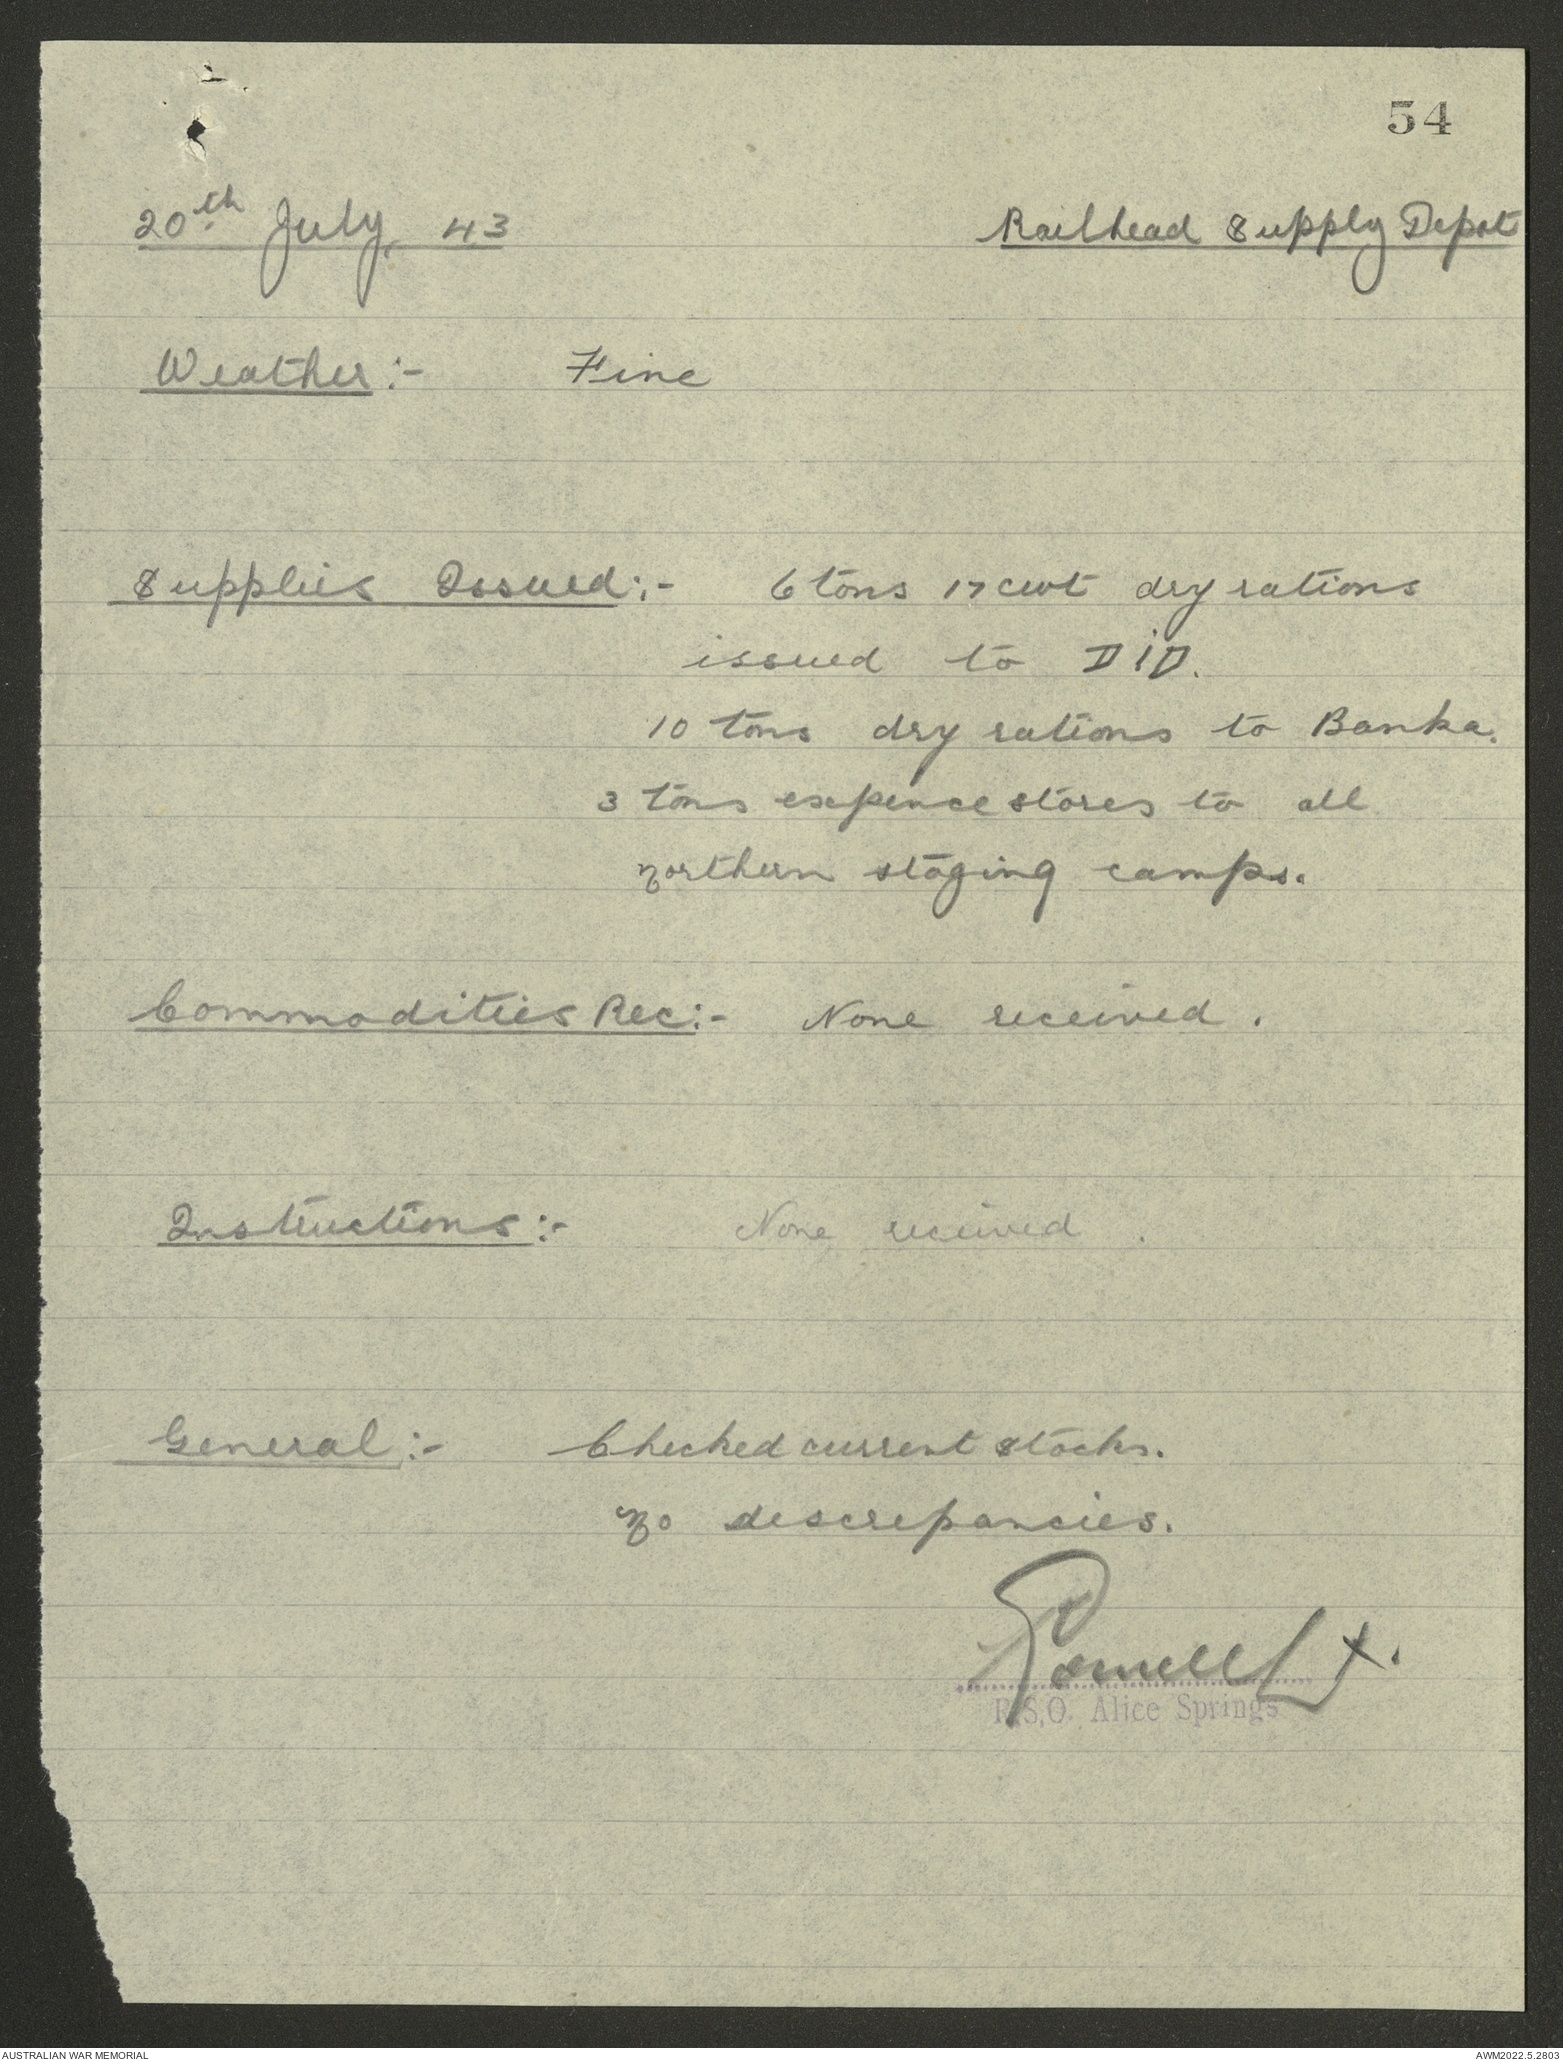 54
20th July, 43 Railhead Supply Depot
Weather:- Fine
Supplies Issued:- 6 tons 17 cwt dry rations
issued to DID.
10 tons dry rations to Banka.
3 tons expence stores to all
northern staging camps.
Commodities Rec:- None received.
Instructions:- None received.
General:- Checked current stocks.
No descrepancies.
R.S.O. Alice Springs
AUSTRALIAN WAR MEMORIAL AWM2022.5.2803